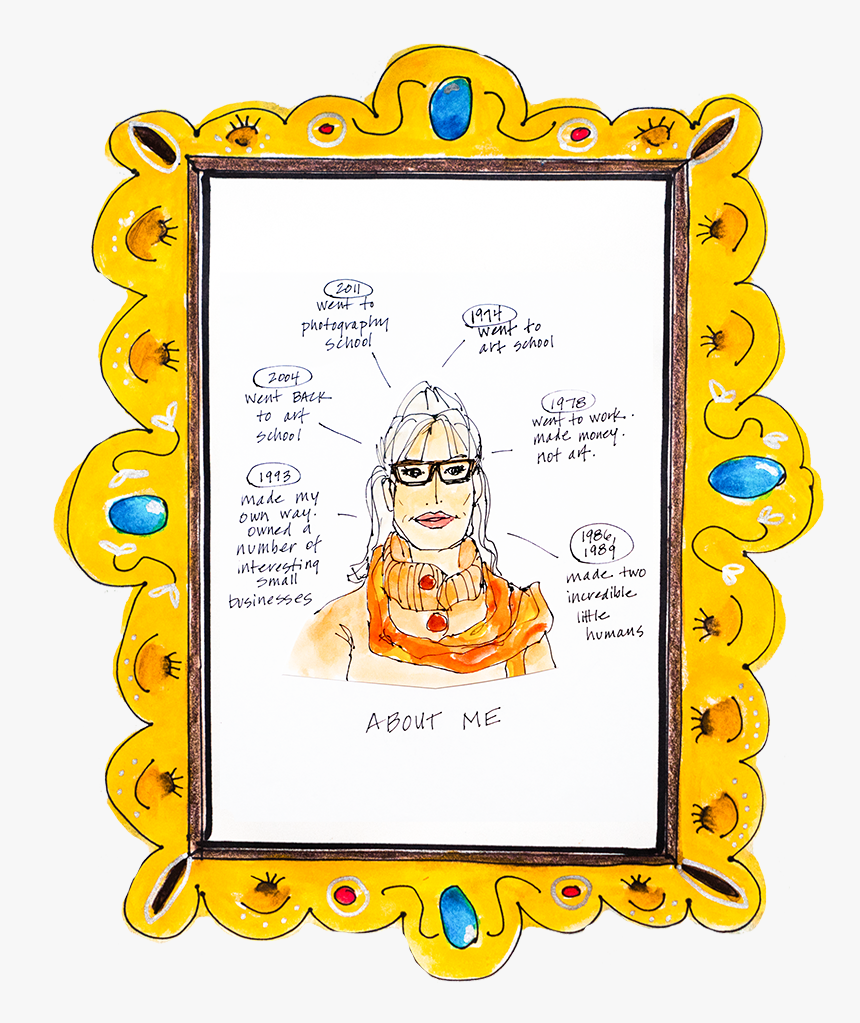 2011
went to
photography
school
1974
went to
art school
2004
went BACK
to art
school
1978
went to work.
made money.
not art.
1993
made my
own way.
owned a
number of
interesting
small
businesses
1986,
1989
made two
incredible
little
humans
ABOUT ME